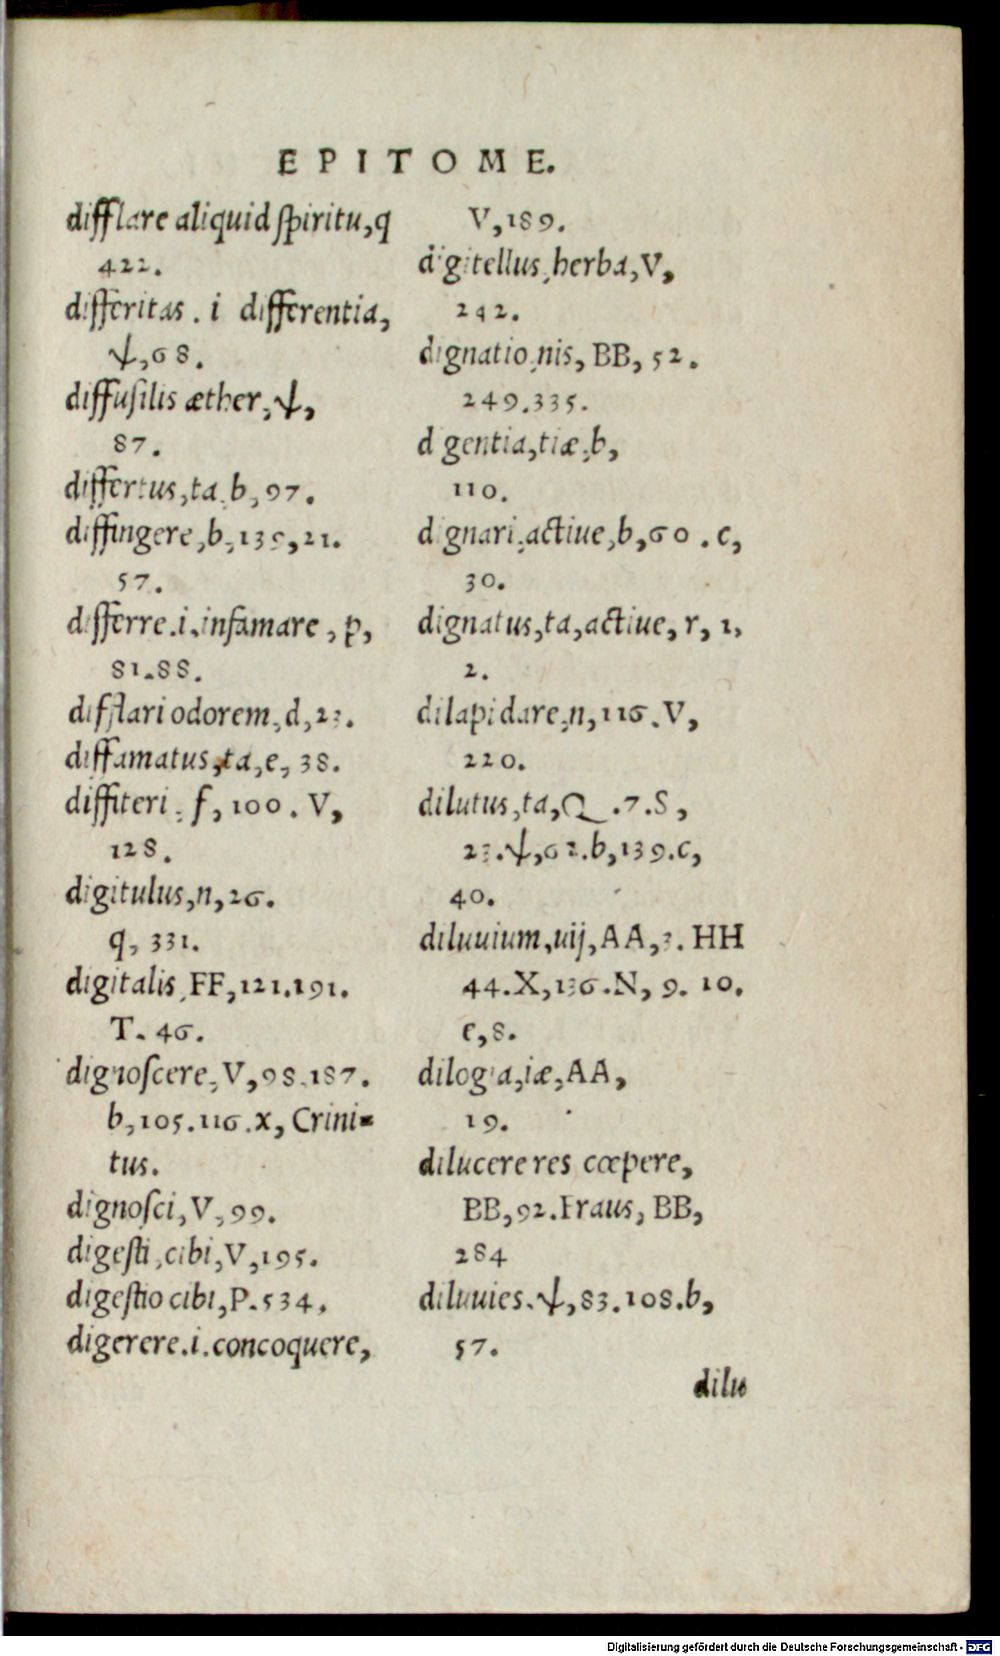 EPITOME.
difflare aliquid spiritu,q
422.
differitas. i differentia,
ψ,68.
diffusilis æther,ψ,
87.
differtus,ta,b,97.
diffingere,b,139,21.
57.
differre.i.infamare, p,
81.88.
difflari odorem,d,23.
diffamatus,ta,e,38.
diffiteri, f,100. V,
128.
digitulus,n,26.
q,331.
digitalis,FF,121.191.
T. 46.
dignoscere,V,98.187.
b,105.116.x, Crini=
tus.
dignosci,V,99.
digesti,cibi,V,195.
digestio cibi,P.534.
digerere.i.concoquere,
V,189.
digitellus,herba,V,
242.
dignatio,nis, BB, 52.
249.335.
digentia,tiæ,b,
110.
dignari,actiue,b,60. c,
30.
dignatus,ta,actiue, r, 1,
2.
dilapidare,n,116.V,
220.
dilutus,ta,Q.7.S,
23.ψ,62.b,139.c,
40.
diluuium,uij,AA,3. HH
44.X,136.N, 9. 10.
e,8.
dilogia,iæ,AA,
19.
dilucere res cœpere,
BB,92.Fraus, BB,
284
diluuies.ψ,83.108.b,
57.
dilu
Digitalisierung gefördert durch die Deutsche Forschungsgemeinschaft - DFG